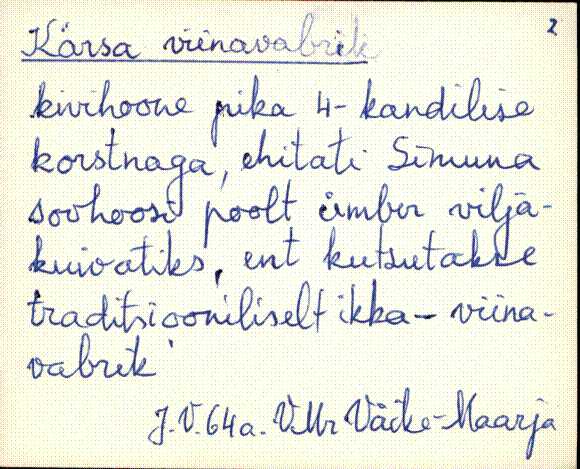 2
Kärsa viinavabrik
kivihoone pika 4-kandilise
korstnaga, ehitati Simuna
sovhoosi poolt ümber vilja-
kuivatiks, ent kutsutakse
traditsiooniliselt ikka - viina-
vabrik
J.V. 64a. V.Mr Väike-Maarja